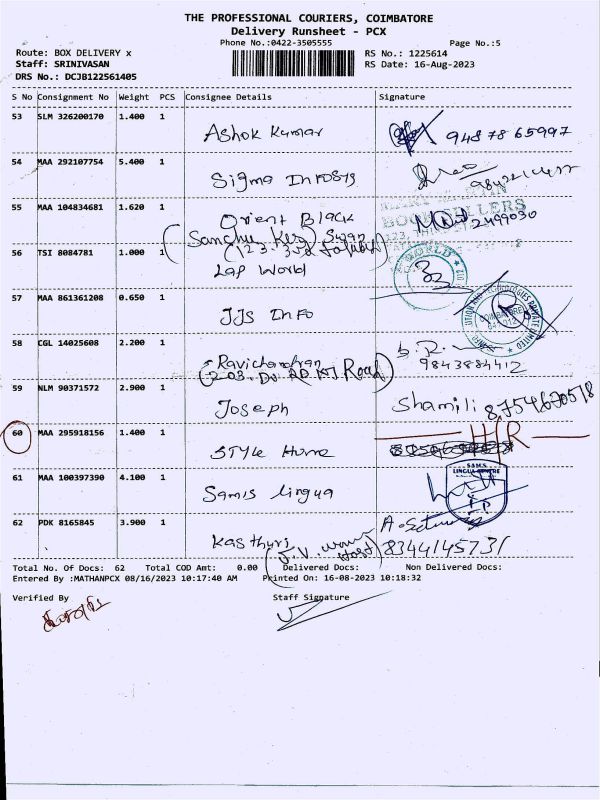 THE PROFESSIONAL COURIERS, COIMBATORE
Delivery Runsheet - PCX
Phone No.:0422-3505555 Page No.:5
Route: BOX DELIVERY x RS No.: 1225614
Staff: SRINIVASAN RS Date: 16-Aug-2023
DRS No.: DCJB122561405
S No Consignment No Weight PCS Consignee Details Signature
53 SLM 326200170 1.400 1
Ashok Kumar 94878 65997
54 MAA 292107754 5.400 1
Sigma Infosys
55 MAA 104834681 1.620 1
Orient Black Swan
2499030
56 TSI 8084781 1.000 1
Lap World
57 MAA 861361208 0.650 1
JJS Info
58 CGL 14025608 2.200 1
Ravichandran
Road
9843884412
59 NLM 90371572 2.900 1
Joseph Shamili 8754670578
60 MAA 295918156 1.400 1
Style Home
61 MAA 100397390 4.100 1
Samis Lingua
SAMS
LINGUA CENTRE
62 PDK 8165845 3.900 1
Kasthuri
8344145731
Total No. Of Docs: 62 Total COD Amt: 0.00 Delivered Docs: Non Delivered Docs:
Entered By :MATHANPCX 08/16/2023 10:17:40 AM Printed On: 16-08-2023 10:18:32
Verified By Staff Signature